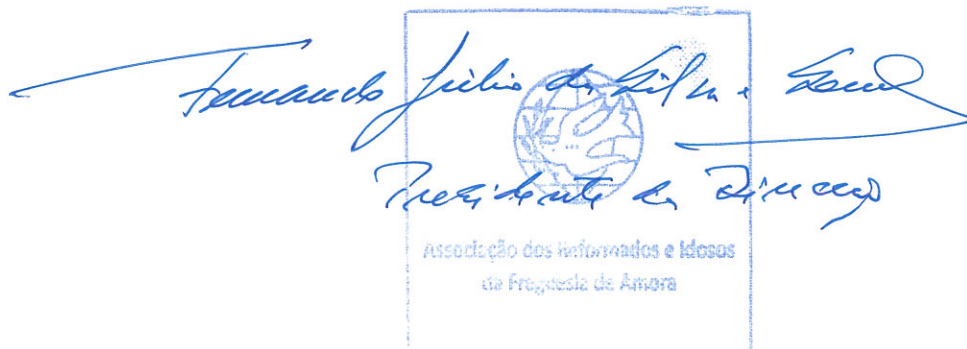 Fernando Júlio da Silva e
Presidente da Direcção
Associação dos Reformados e Idosos
da Freguesia de Amora